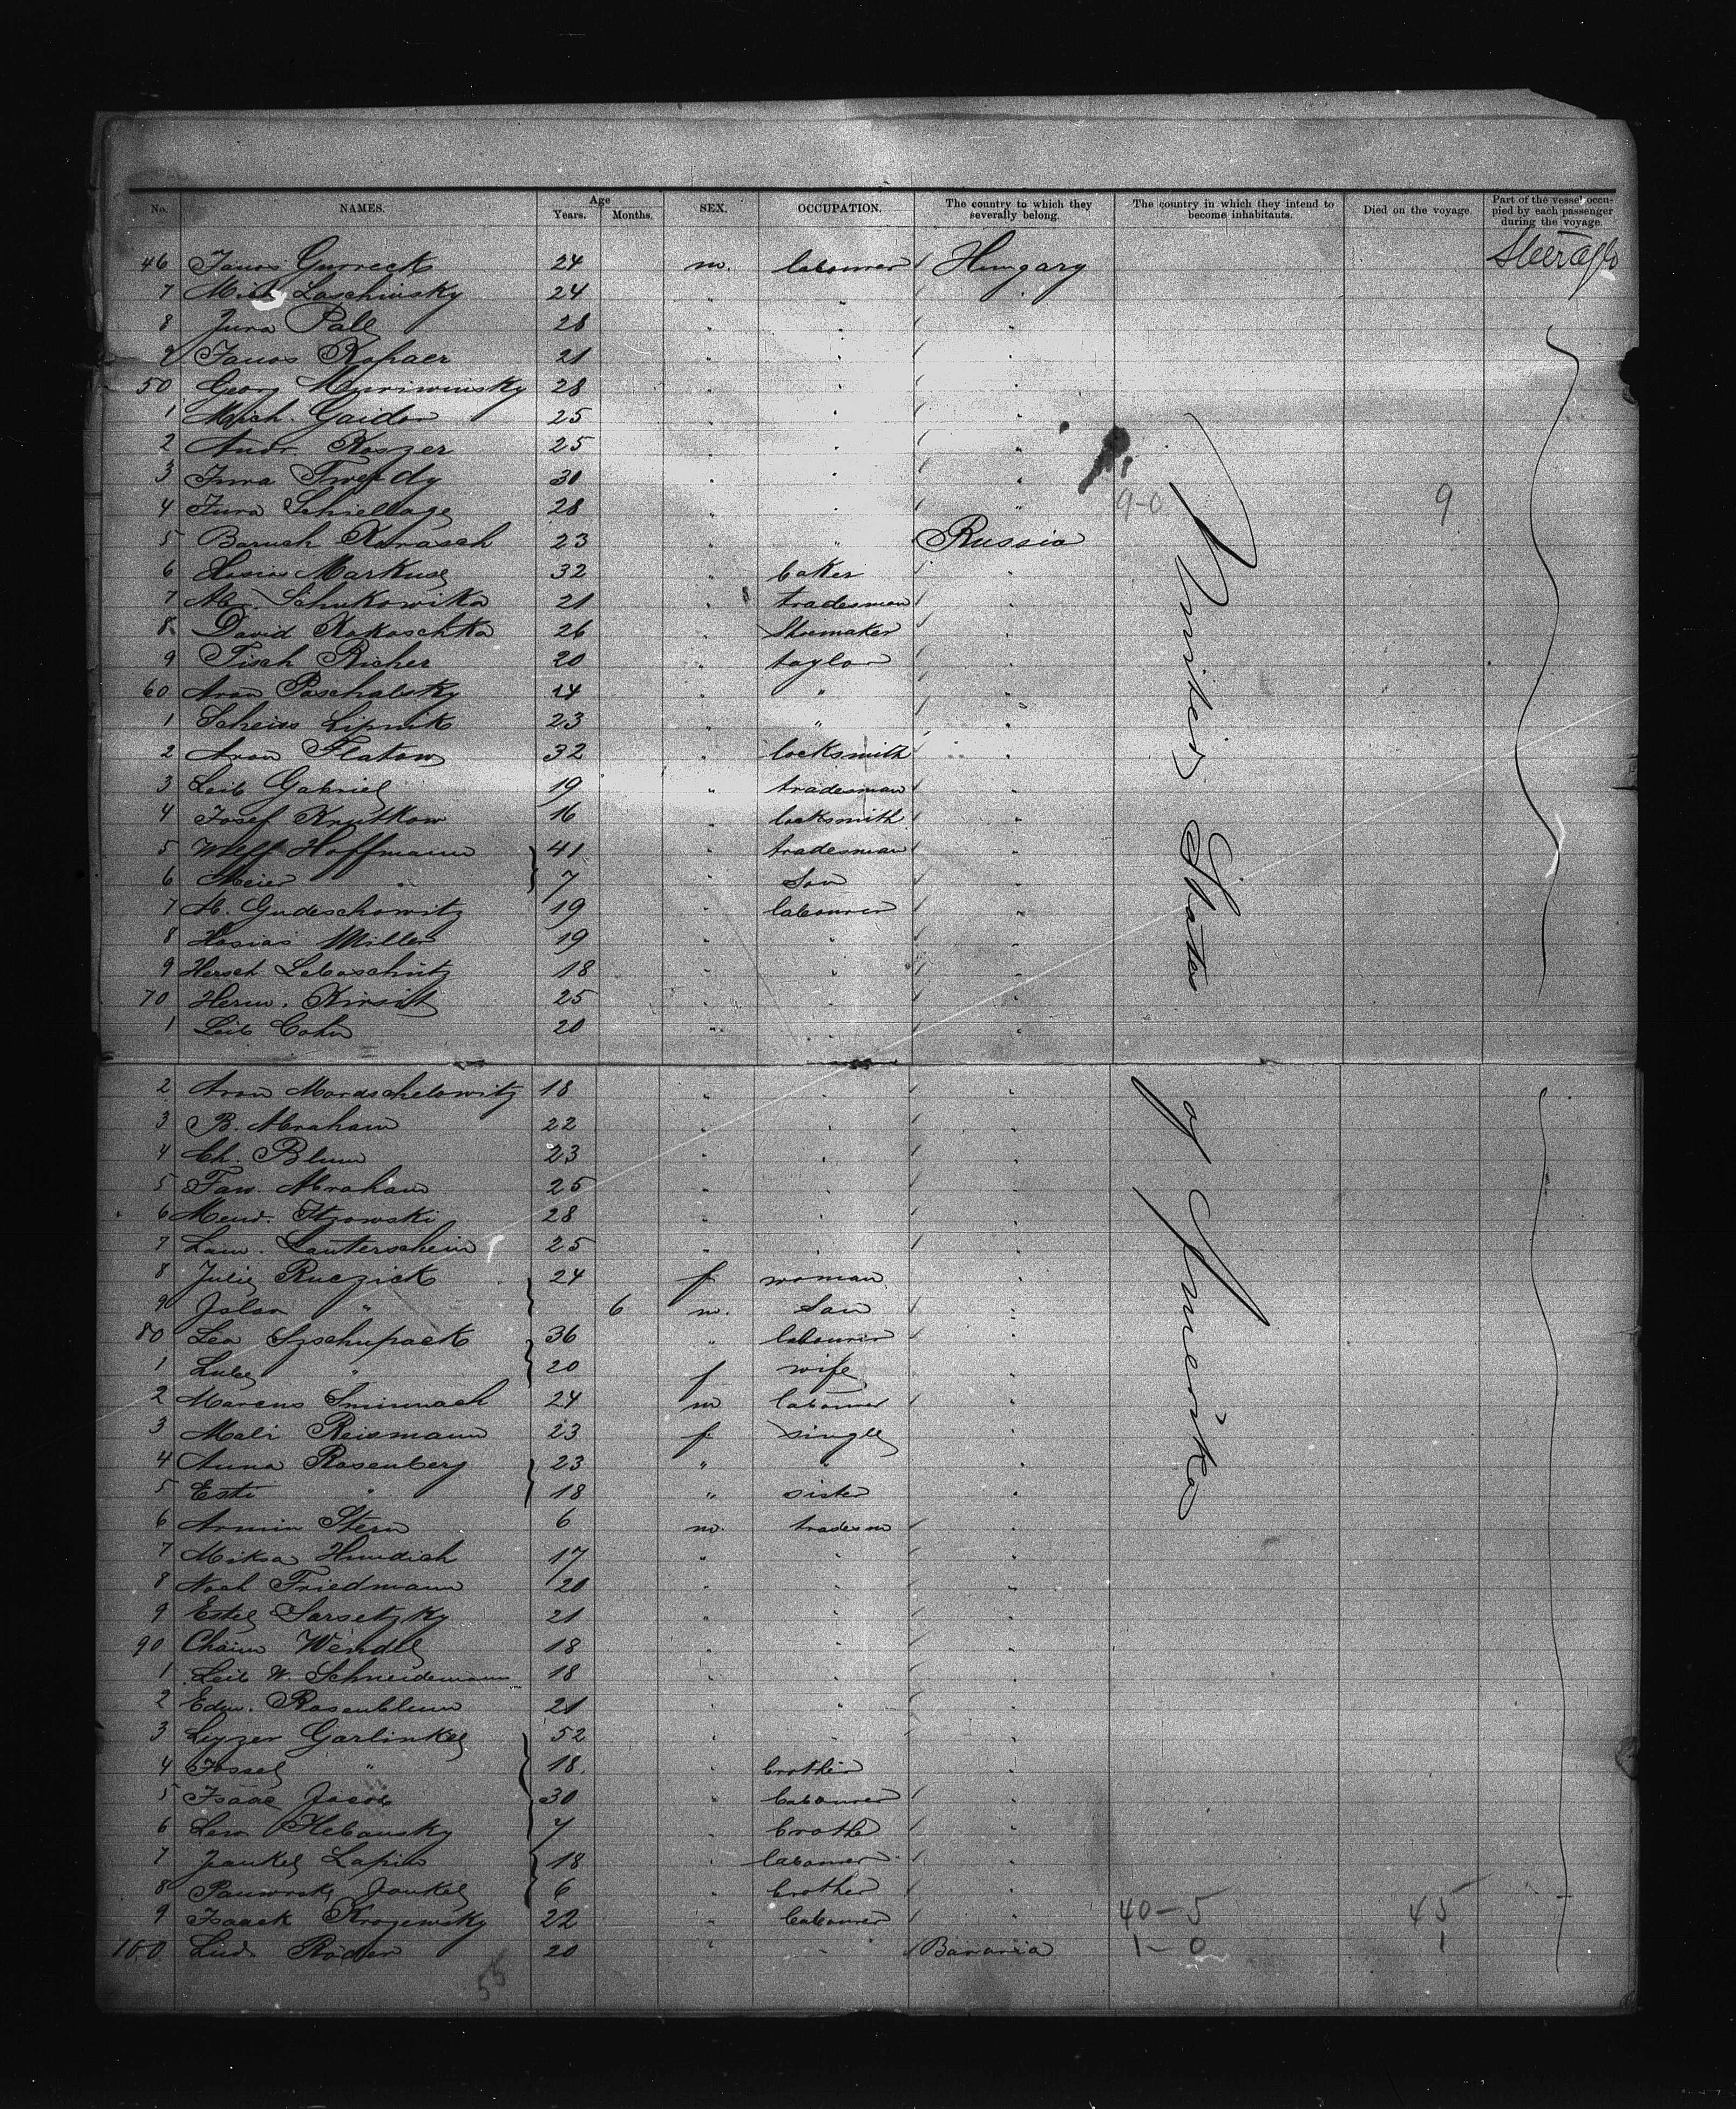 No. NAMES. Age Years. Months. SEX. OCCUPATION. The country to which they severally belong. The country in which they intend to become inhabitants. Died on the voyage. Part of the vessel occupied by each passenger during the voyage.
46 Janos Gurreck 24 m. labourer Hungary Steerage
7 Mich Laschinsky 24 " " "
8 Jura Pall 28 " " "
9 Janos Kopaer 21 " " "
50 Georg 28 " " "
1 Mich. Gaidor 25 " " "
2 Andr. Koszer 25 " " "
3 Jura Twerdy 30 " " "
4 Jura Schiellage 28 " " " 9-0 9
5 Baruch Karasch 23 " " Russia
6 Markuse 32 " baker "
7 Abr. Schukowika 21 " tradesman "
8 David Kokoschka 26 " Shoemaker "
9 Fisch Richer 20 " taylor "
60 Aron Paschalsky 14 " " "
1 Lipnik 23 " " "
2 Aron Flatow 32 " locksmith "
3 Leib Gabriel 19 " tradesman "
4 Josef Krutkow 16 " locksmith "
5 Wolff Hoffmann 41 " tradesman "
6 Meier " 7 " Son "
7 A. Gudeschowitz 19 " labourer "
8 Hosias Miller 19 " " "
9 Hersch Leboschitz 18 " " "
70 Herm. Kirsch 25 " " "
1 Leib Cohn 20 " " "
United States of Amerika
2 Aron Mordschelowitz 18 " " "
3 B. Abraham 22 " " "
4 Ch. Blum 23 " " "
5 Abraham 25 " " "
6 Mend. Itzowski 28 " " "
7 Lauterschein 25 " " "
8 Julie Ruczick 24 f woman "
9 " 6 m. Son "
80 Lea Szschupack 36 " labourer "
1 Lube " 20 f wife "
2 Marcus 24 m labourer "
3 Mali Reismann 23 f single "
4 Anna Rosenberg 23 " " "
5 Esti " 18 " sister "
6 Armin Stern 6 m. tradesm "
7 Miksa Hundich 17 " " "
8 Noah Friedmann 20 " " "
9 Estel Sarsetzky 21 " " "
90 Chaim Wendel 18 " " "
1 Leib W. Schneidemann 18 " " "
2 Edw. Rosenblum 21 " " "
3 Leyzer Garlinkel 52 " " "
4 Jossel " 18. " brother "
5 Isaac Jacob 30 " labourer "
6 Lew Klebansky 7 " brothe "
7 Jankel Lapin 18 " labourer "
8 Jankel 6 " brother "
9 Isaack Krojewsky 22 " labourer " 40-5 45
100 Lud. Röder 20 " " Bavaria 1-0 1
55